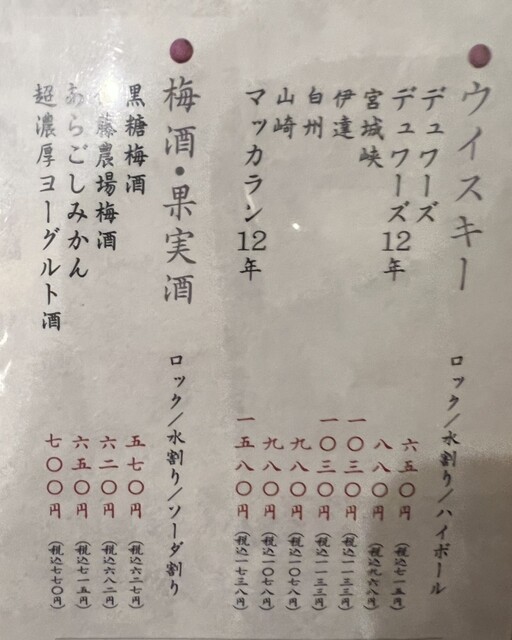 ウイスキー ロック/水割り/ハイボール
デュワーズ 六五〇円(税込七一五円)
デュワーズ12年 八八〇円(税込九六八円)
宮城峡 一〇三〇円(税込一一三三円)
伊達 一〇三〇円(税込一一三三円)
白州 九八〇円(税込一〇七八円)
山崎 九八〇円(税込一〇七八円)
マッカラン12年 一五八〇円(税込一七三八円)
梅酒・果実酒 ロック/水割り/ソーダ割り
黒糖梅酒 五七〇円(税込六二七円)
藤農場梅酒 六二〇円(税込六八二円)
あらごしみかん 六五〇円(税込七一五円)
超濃厚ヨーグルト酒 七〇〇円(税込七七〇円)